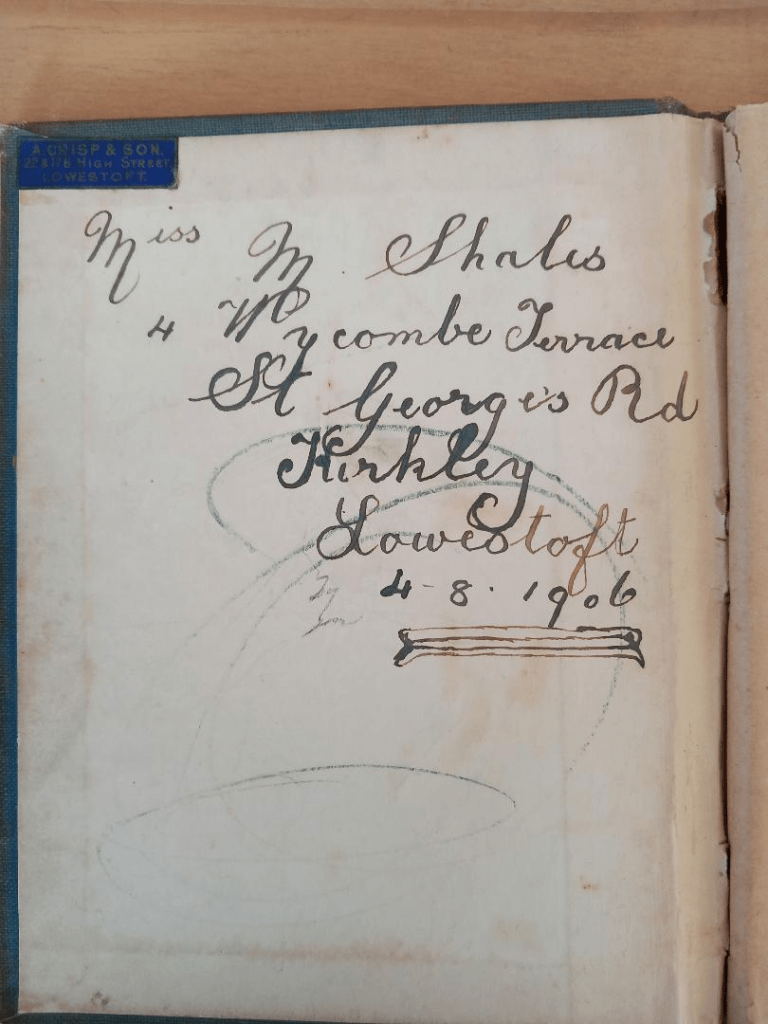 A. CRISP & SON,
HIGH STREET
LOWESTOFT.
Miss M. Shales
4 Wycombe Terrace
St George's Rd
Kirkley
Lowestoft
4-8.1906